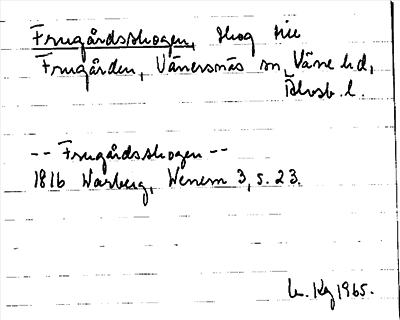 Frugårdsskogen, skog till
Frugården, Vänersnäs sn, Väne hd,
Älvsb. l.
-- Frugårdsskogen --
1816 Warberg, Wenern 3, s. 23.
Kg 1965.